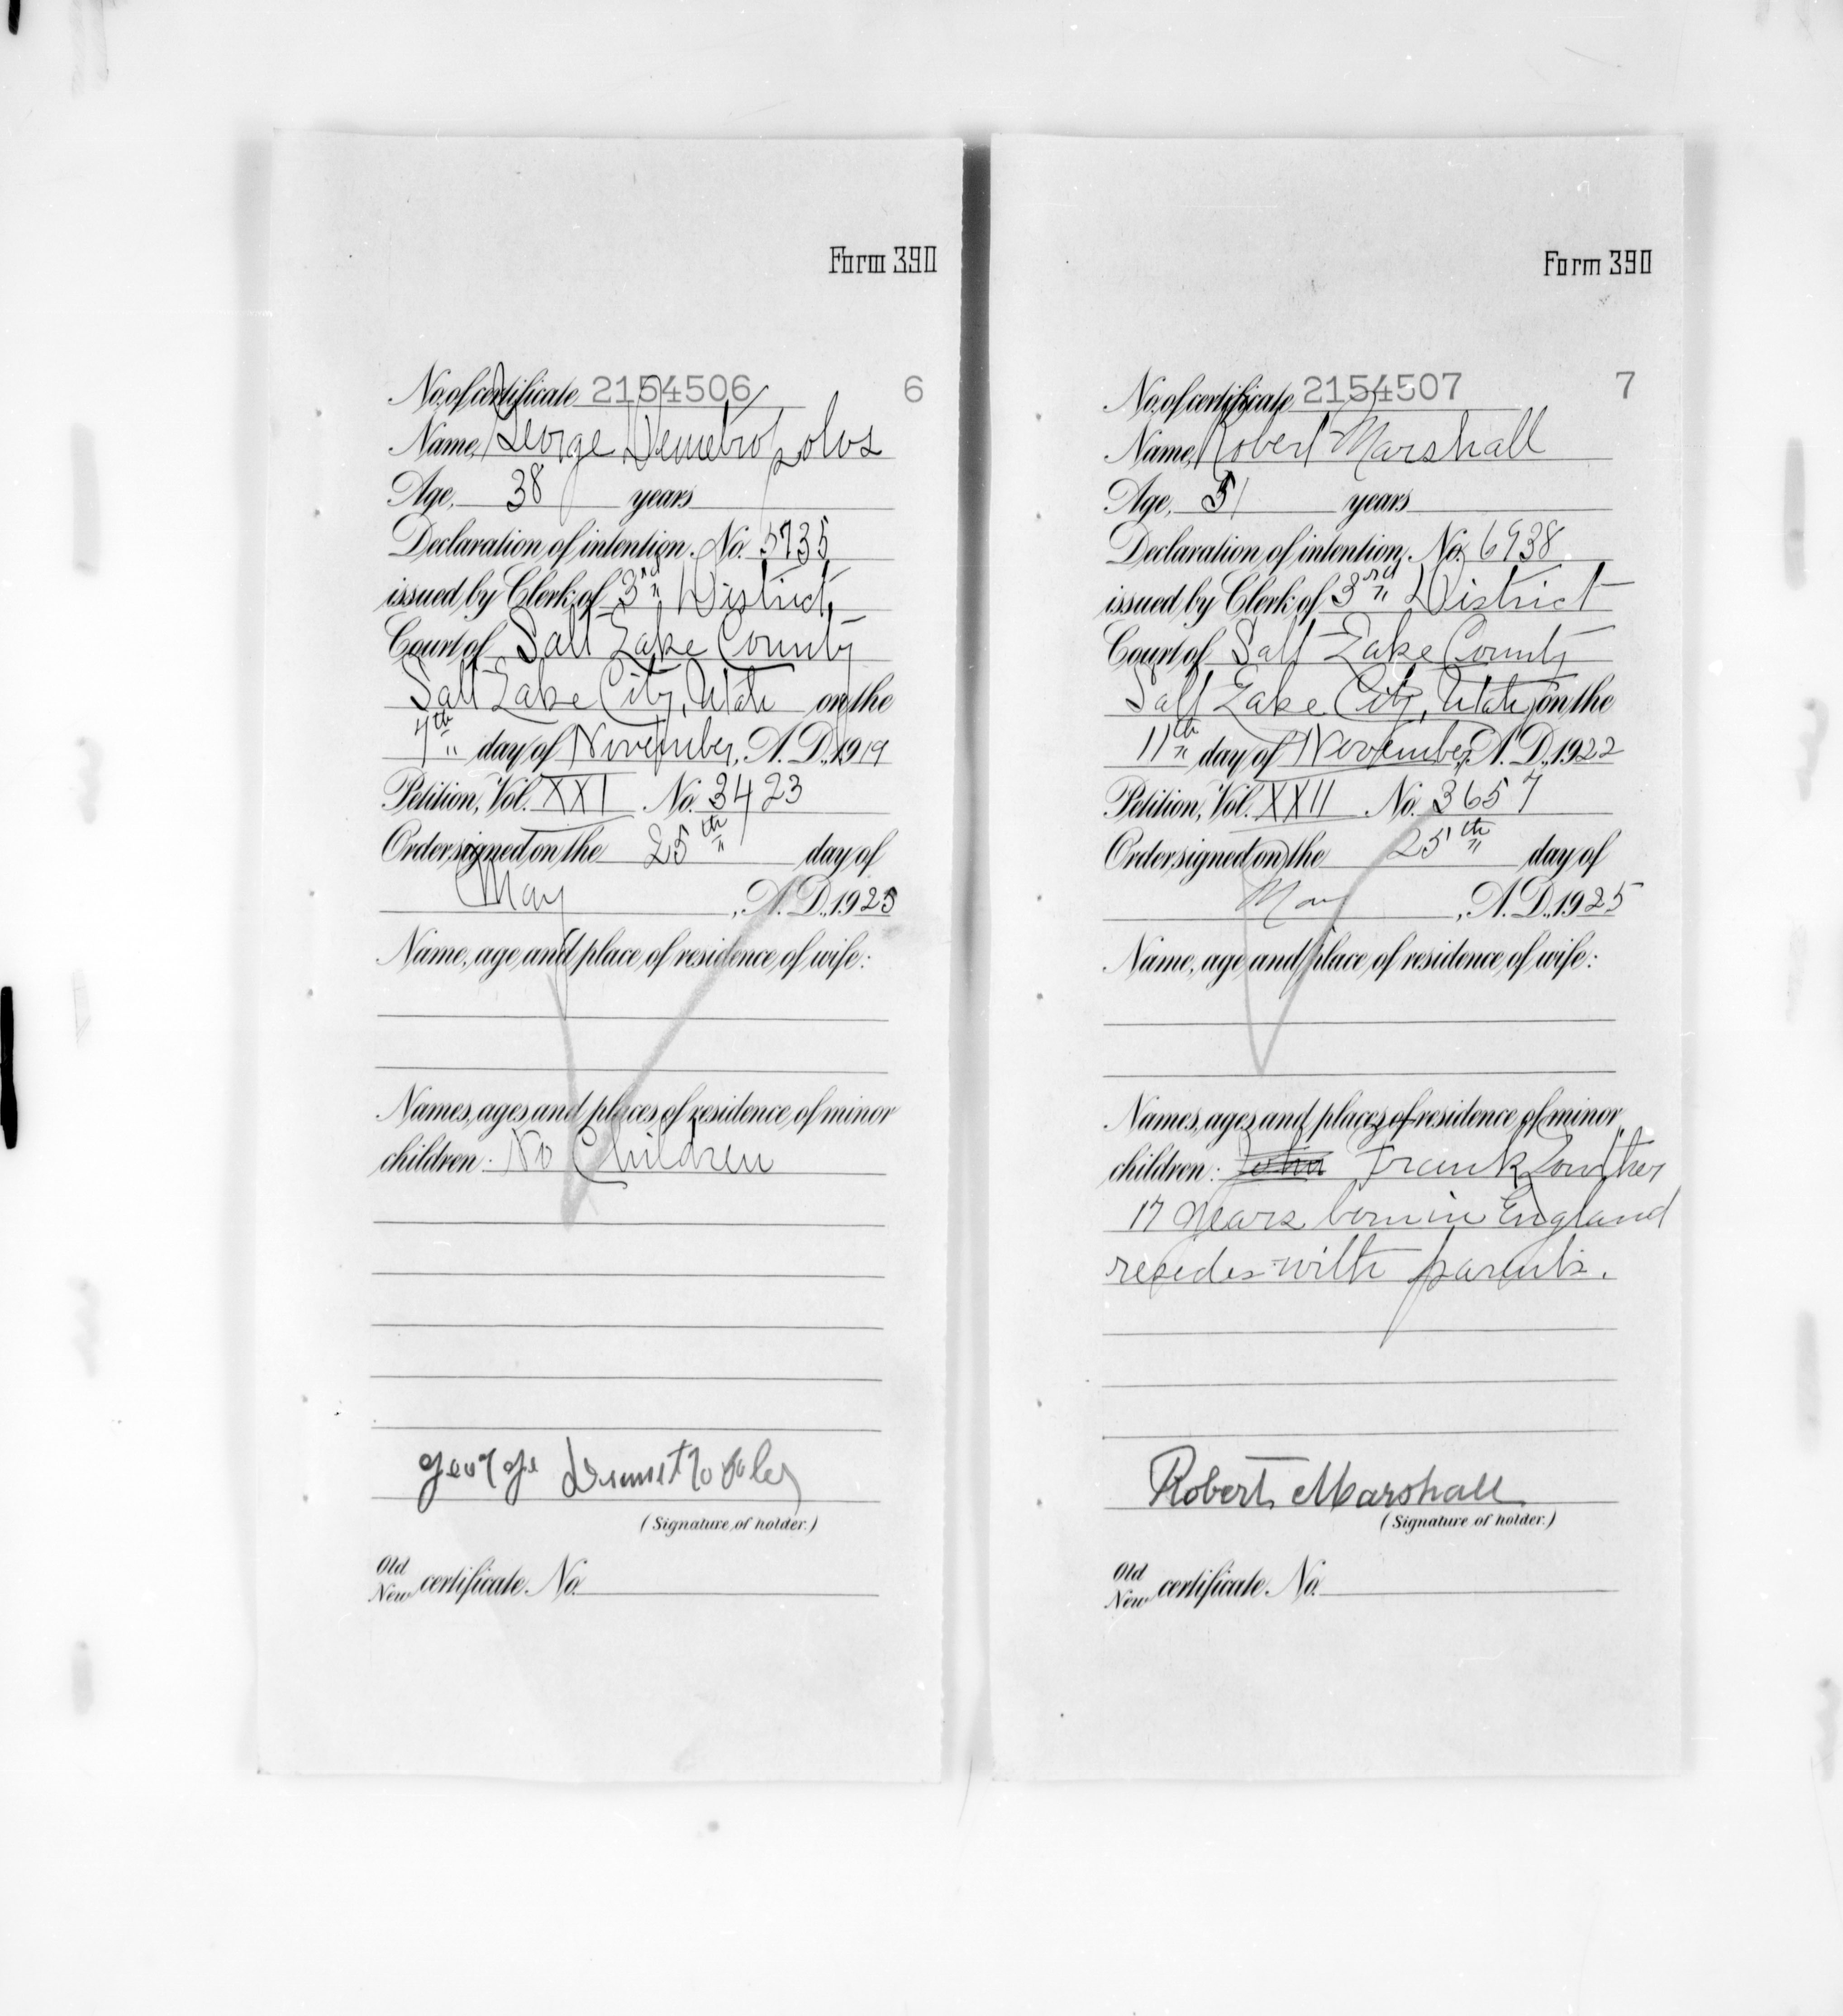 Form 390
No. of certificate 2154506 6
Name, George Demetropolos
Age, 38 years
Declaration of intention, No. 5735
issued by Clerk of 3rd District
Court of Salt Lake County
Salt Lake City, Utah on the
7th day of November, A. D., 1919
Petition, Vol. XXI No. 3423
Order signed on the 25th day of
May, A. D., 1925
Name, age and place of residence of wife:
Names, ages and places of residence of minor
children: No Children
George
(Signature of holder.)
Old
New certificate No.
Form 390
No. of certificate 2154507 7
Name, Robert Marshall
Age, 51 years
Declaration of intention, No. 6938
issued by Clerk of 3rd District
Court of Salt Lake County
Salt Lake City, Utah, on the
11th day of November, A. D., 1922
Petition, Vol. XXII No. 3657
Order signed on the 25th day of
May, A. D., 1925
Name, age and place of residence of wife:
Names, ages and places of residence of minor
children: John Frank Lowther
17 years born in England
resides with parents.
Robert Marshall
(Signature of holder.)
Old
New certificate No.